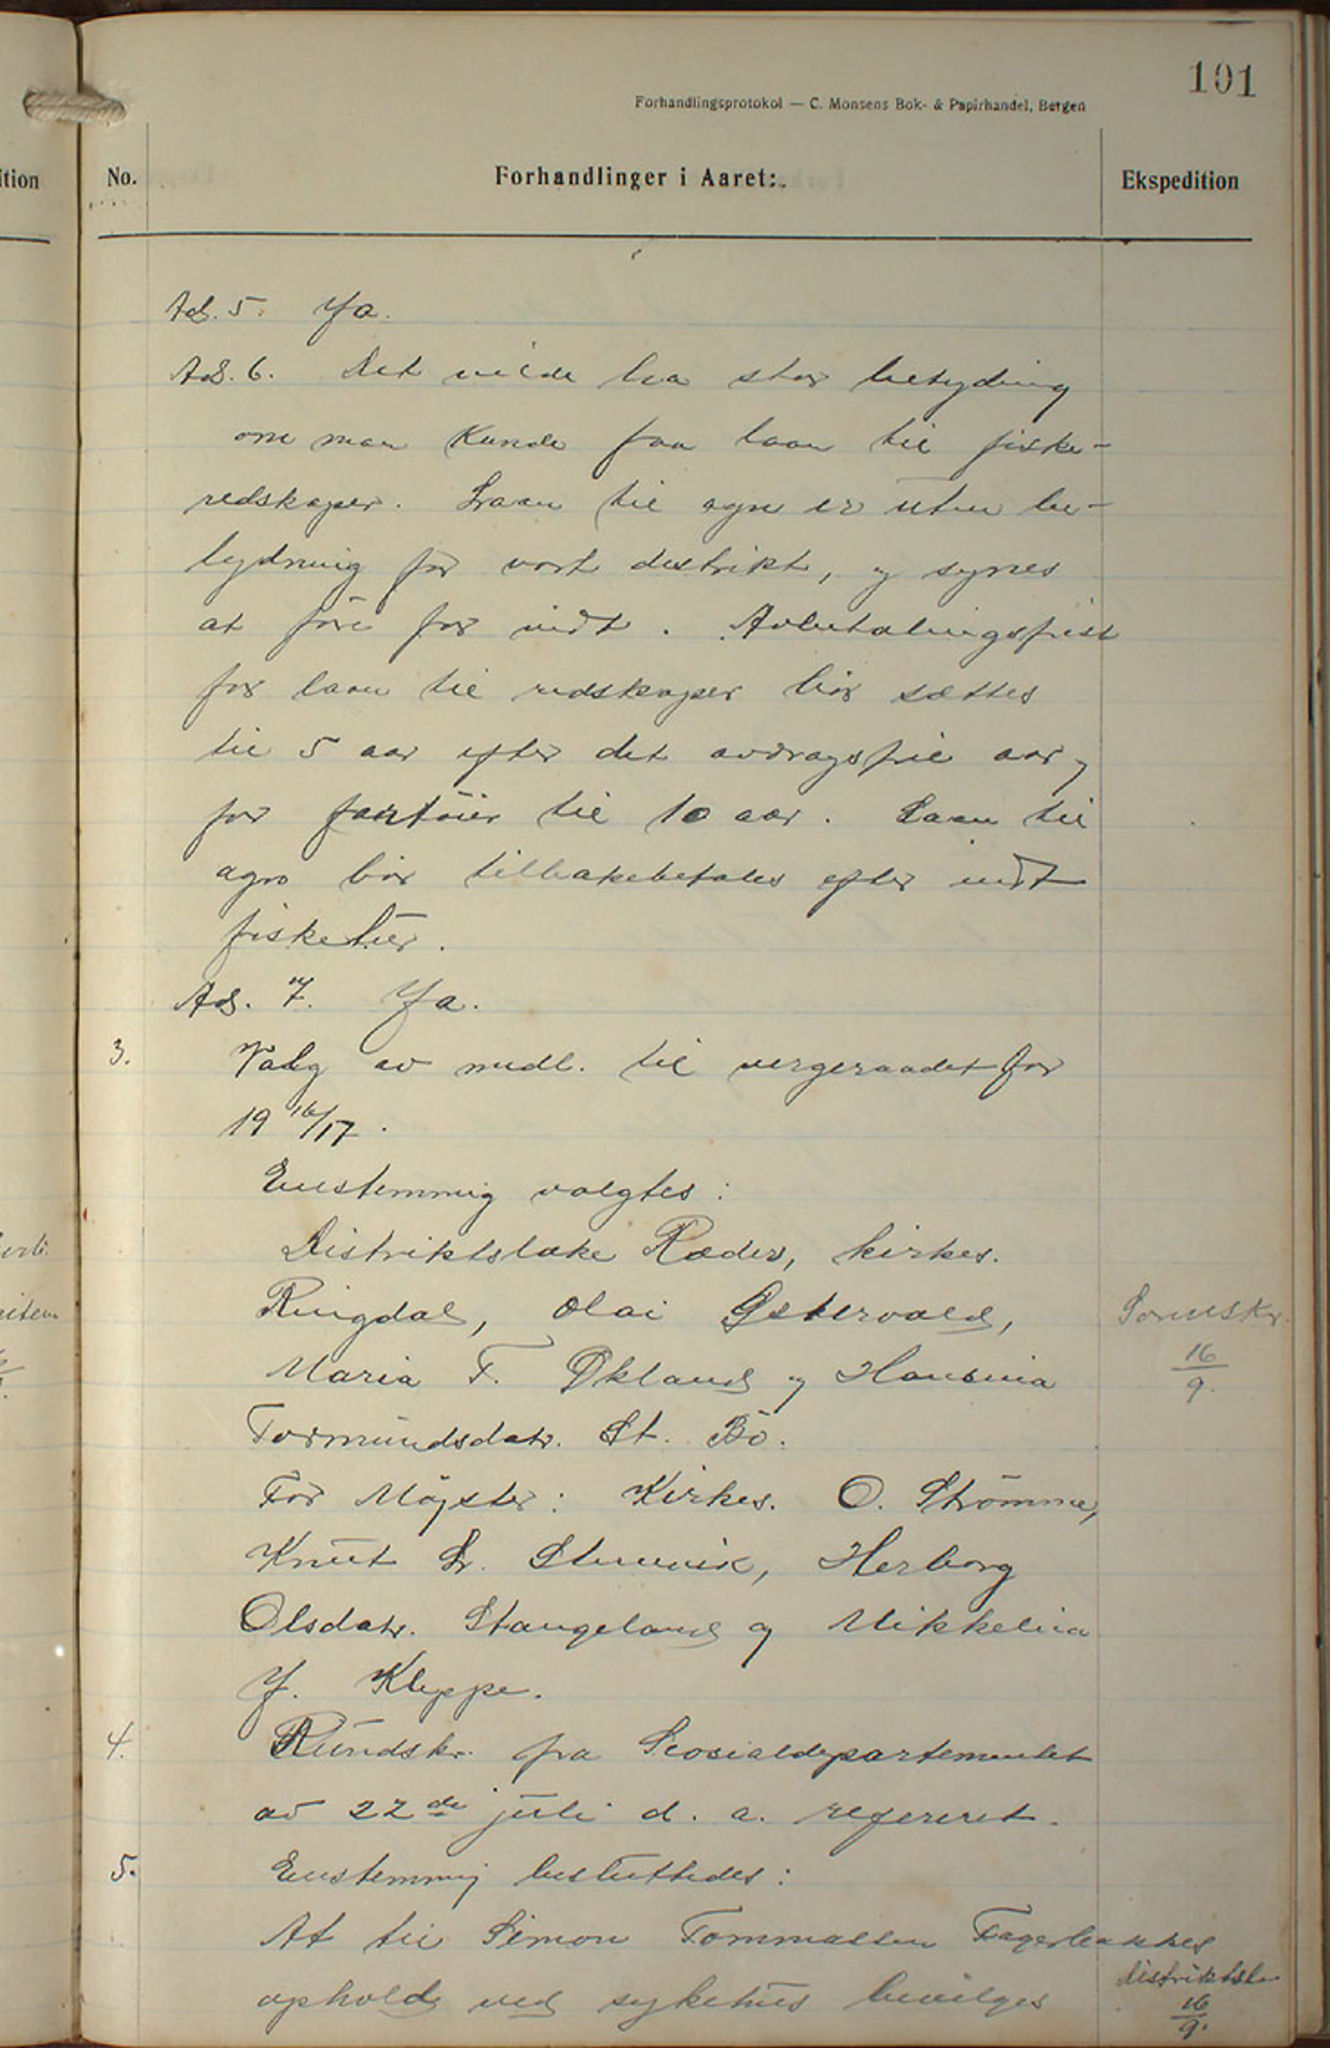 101
Forhandlingsprotokol — C. Monsens Bok- & Papirhandel, Bergen
ition
No.
Forhandlinger i Aaret:
Ekspedition
Ad. 5. Ja.
Ad. 6. Det vilde ha stor betydning
om man kunde faa laan til fiske-
redskaper. Laan til agn er uten be-
tydning for vort distrikt, og synes
at føre for vidt. Avbetalingsfrist
for laan til redskaper bør sættes
til 5 aar efter det avdragsfrie aar og
for fartøier til 10 aar. Laan til
agn bør tilbakebetales efter endt
fisketur.
Ad. 7. Ja.
3. Valg av medl. til vergeraadet for
19 16/17.
Enstemmig valgtes:
Distriktslæke Ræder, kirkes.
Ringdal, Olai Østervold,
Maria T. Økland og Hansina
Tormundsdatr. St. Bö.
For Møgster: Kirkes. O. Strömme,
Knut L. Stunvik, Herborg
Olsdatr. Stangeland og Mikkelina
J. Kleppe.
Formskr.
16/9.
4. Rundskr. fra Scosialdepartementet
av 22de juli d. a. refereret.
5. Enstemmig besluttedes:
At til Simon Tommassen Fagerbakkes
ophold ved sykehus bevilges
distriktsl.
16/9.